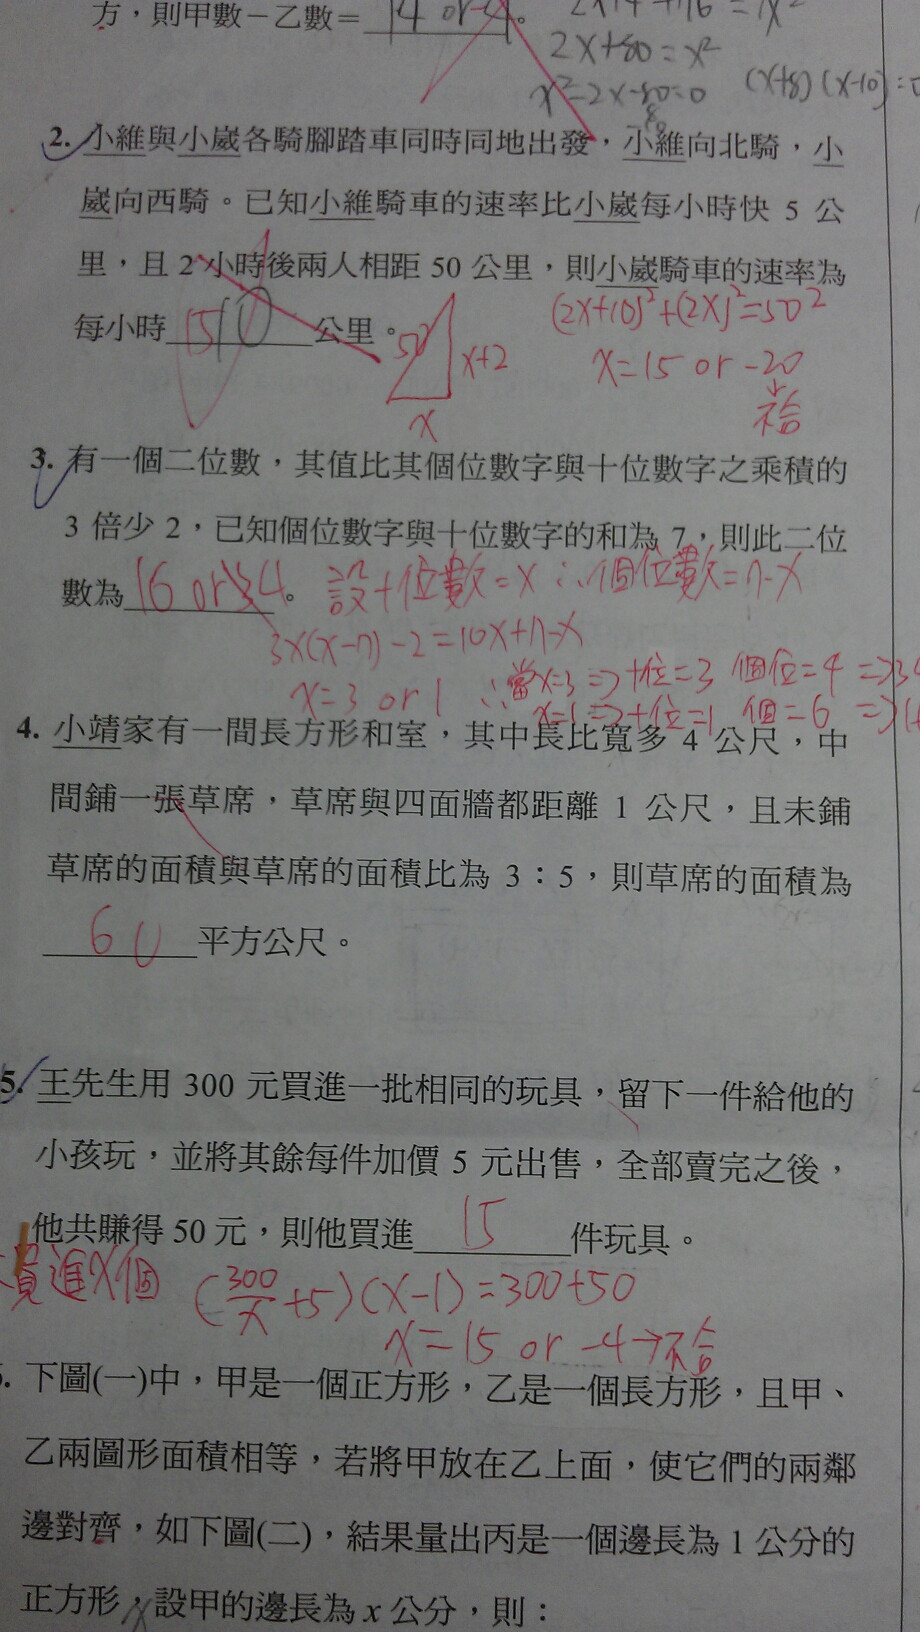 方，則甲數－乙數＝ 14 or -4 。
2x+80=x²
x²-2x-80=0 (x+8)(x-10)=0
2. 小維與小崴各騎腳踏車同時同地出發，小維向北騎，小
崴向西騎。已知小維騎車的速率比小崴每小時快 5 公
里，且 2 小時後兩人相距 50 公里，則小崴騎車的速率為
每小時 15 公里。
(2x+10)²+(2x)²=50²
50 x+2
x
x=15 or -20
不合
3. 有一個二位數，其值比其個位數字與十位數字之乘積的
3 倍少 2，已知個位數字與十位數字的和為 7，則此二位
數為 16 or 34 。 設十位數=x ∴個位數=7-x
3x(x-7)-2=10x+7-x
x=3 or 1 ∴當x=3⇒十位=3 個位=4 ⇒34
x=1⇒十位=1 個=6 ⇒
4. 小靖家有一間長方形和室，其中長比寬多 4 公尺，中
間鋪一張草席，草席與四面牆都距離 1 公尺，且未鋪
草席的面積與草席的面積比為 3：5，則草席的面積為
60 平方公尺。
5. 王先生用 300 元買進一批相同的玩具，留下一件給他的
小孩玩，並將其餘每件加價 5 元出售，全部賣完之後，
他共賺得 50 元，則他買進 15 件玩具。
買進x個 (300/x+5)(x-1)=300+50
x=15 or -4→不合
下圖(一)中，甲是一個正方形，乙是一個長方形，且甲、
乙兩圖形面積相等，若將甲放在乙上面，使它們的兩鄰
邊對齊，如下圖(二)，結果量出丙是一個邊長為 1 公分的
正方形，設甲的邊長為 x 公分，則：